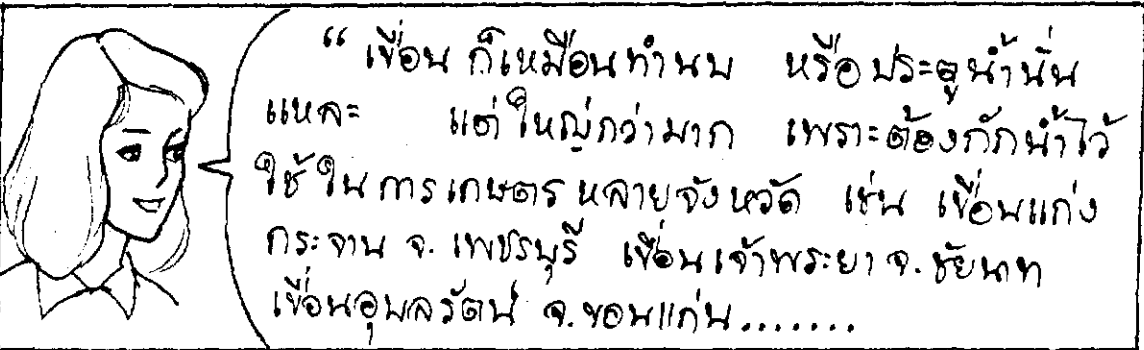 “ เขื่อน ก็เหมือนทำนบ หรือประตูน้ำนั่น
แหละ แต่ใหญ่กว่ามาก เพราะต้องกักน้ำไว้
ใช้ในการเกษตรหลายจังหวัด เช่น เขื่อนแก่ง
กระจาน จ. เพชรบุรี เขื่อนเจ้าพระยา จ. ชัยนาท
เขื่อนอุบลรัตน์ จ. ขอนแก่น.......